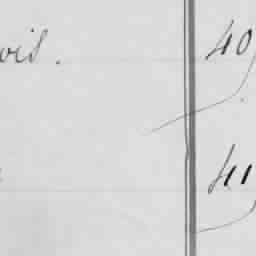 ois. 40
41